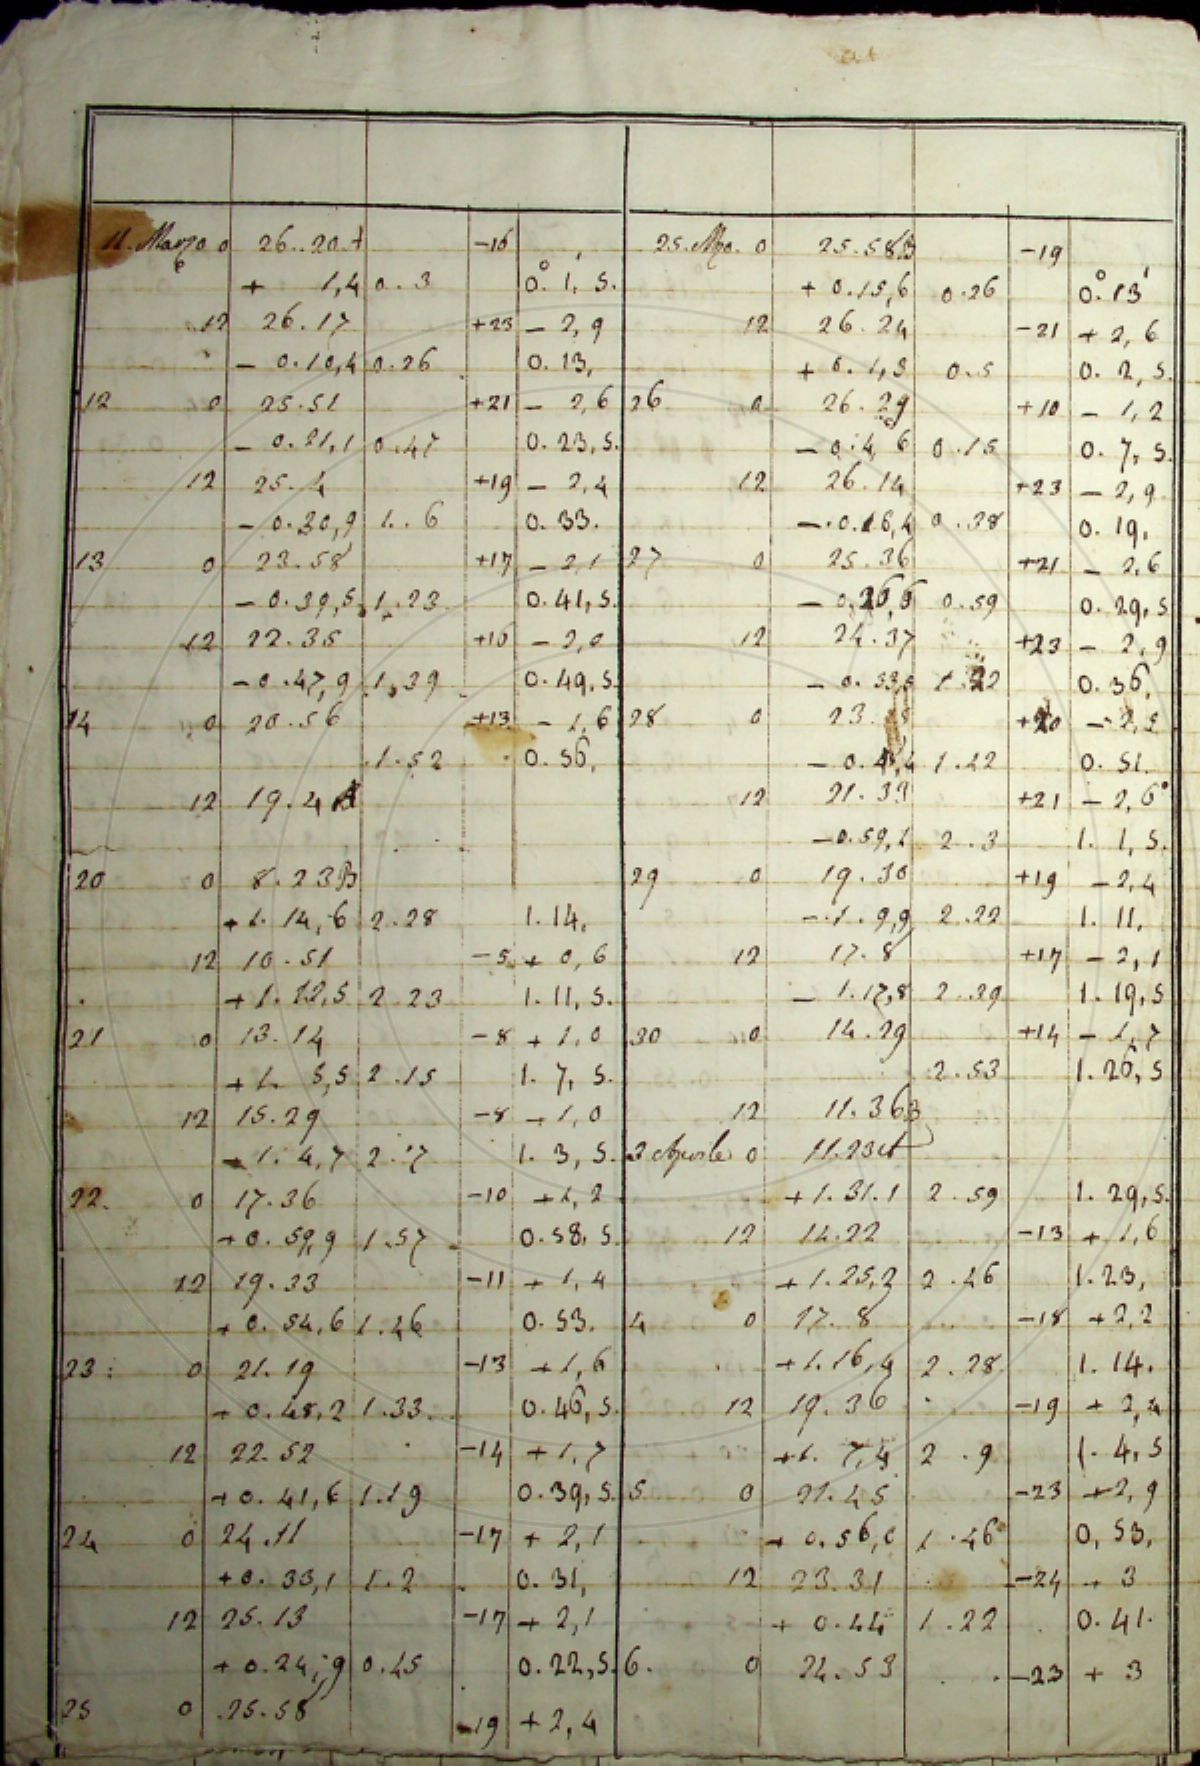 11. Marzo 0 26..20 A -16
+ 1,4 0.3 0.° 1, 5.
12 26.17 +23 - 2,9
- 0.10,4 0.26 0.13,
12 0 25.51 +21 - 2,6
- 0.21,1 0.47 0.23,5.
12 25.4 +19 - 2,4
- 0.30,9 1.6 0.33.
13 0 23.58 +17 - 2,1
- 0.39,5 1.23 0.41,5.
12 22.35 +16 - 2,0
- 0.47,9 1.39 0.49,5
14 0 20.56 +13 - 1,6
1.52 0.56,
12 19.4 A
20 0 8.23 B
+1.14,6 2.28 1.14,
12 10.51 -5 + 0,6
+1.12,5 2.23 1.11,5.
21 0 13.14 -8 + 1,0
+1. 5,5 2.15 1.7, 5.
12 15.29 -8 + 1,0
+1.4,7 2.7 1.3, 5.
22. 0 17.36 -10 +1,2
+0.59,9 1.57 0.58,5.
12 19.33 -11 + 1,4
+0.54,6 1.46 0.53.
23: 0 21.19 -13 +1,6
+0.48,2 1.33. 0.46,5.
12 22.52 -14 +1,7
+0.41,6 1.19 0.39,5.
24 0 24.11 -17 + 2,1
+0.33,1 1.2 0.31,
12 25.13 -17 + 2,1
+0.24,9 0.45 0.22,5.
25 0 25.58 -19 + 2,4
25. Mzo. 0 25.58 B -19
+ 0.15,6 0.26 0.° 13'
12 26.24 -21 + 2,6
+ 0.1,3 0.5 0. 2,5.
26 0 26.29 +10 - 1,2
- 0.4 6 0.15 0. 7,5.
12 26.14 +23 - 2,9
- 0.16,4 0.38 0.19,
27 0 25.36 +21 - 2,6
- 0.26,6 0.59 0.29,5
12 24.37 +23 - 2,9
- 0.33,5 1.22 0.36,
28 0 23. +20 - 2,5
1.42 0.51.
12 21.33 +21 - 2,6
- 0.59,1 2.3 1. 1,5.
29 0 19.30 +19 - 2,4
- 1.9,9 2.22 1. 11,
12 17.8 +17 - 2,1
- 1.17,8 2.39 1.19,5
30 0 14.29 +14 - 1,7
2.53 1.26,5
12 11.36 B
3 Aprile 0 11.23 A
+1.31.1 2.59 1.29,5.
12 14.22 -13 + 1,6
+1.25,2 2.46 1.23,
4 0 17.8 -18 +2,2
+1.16,4 2.28 1.14.
12 19.36 -19 + 2,4
+1. 7,4 2.9 1. 4,5
5 0 21.45 -23 +2,9
+ 0.56,0 1.46 0,53,
12 23.31 -24 + 3
+ 0.44 1.22 0.41.
6. 0 24.53 -23 + 3